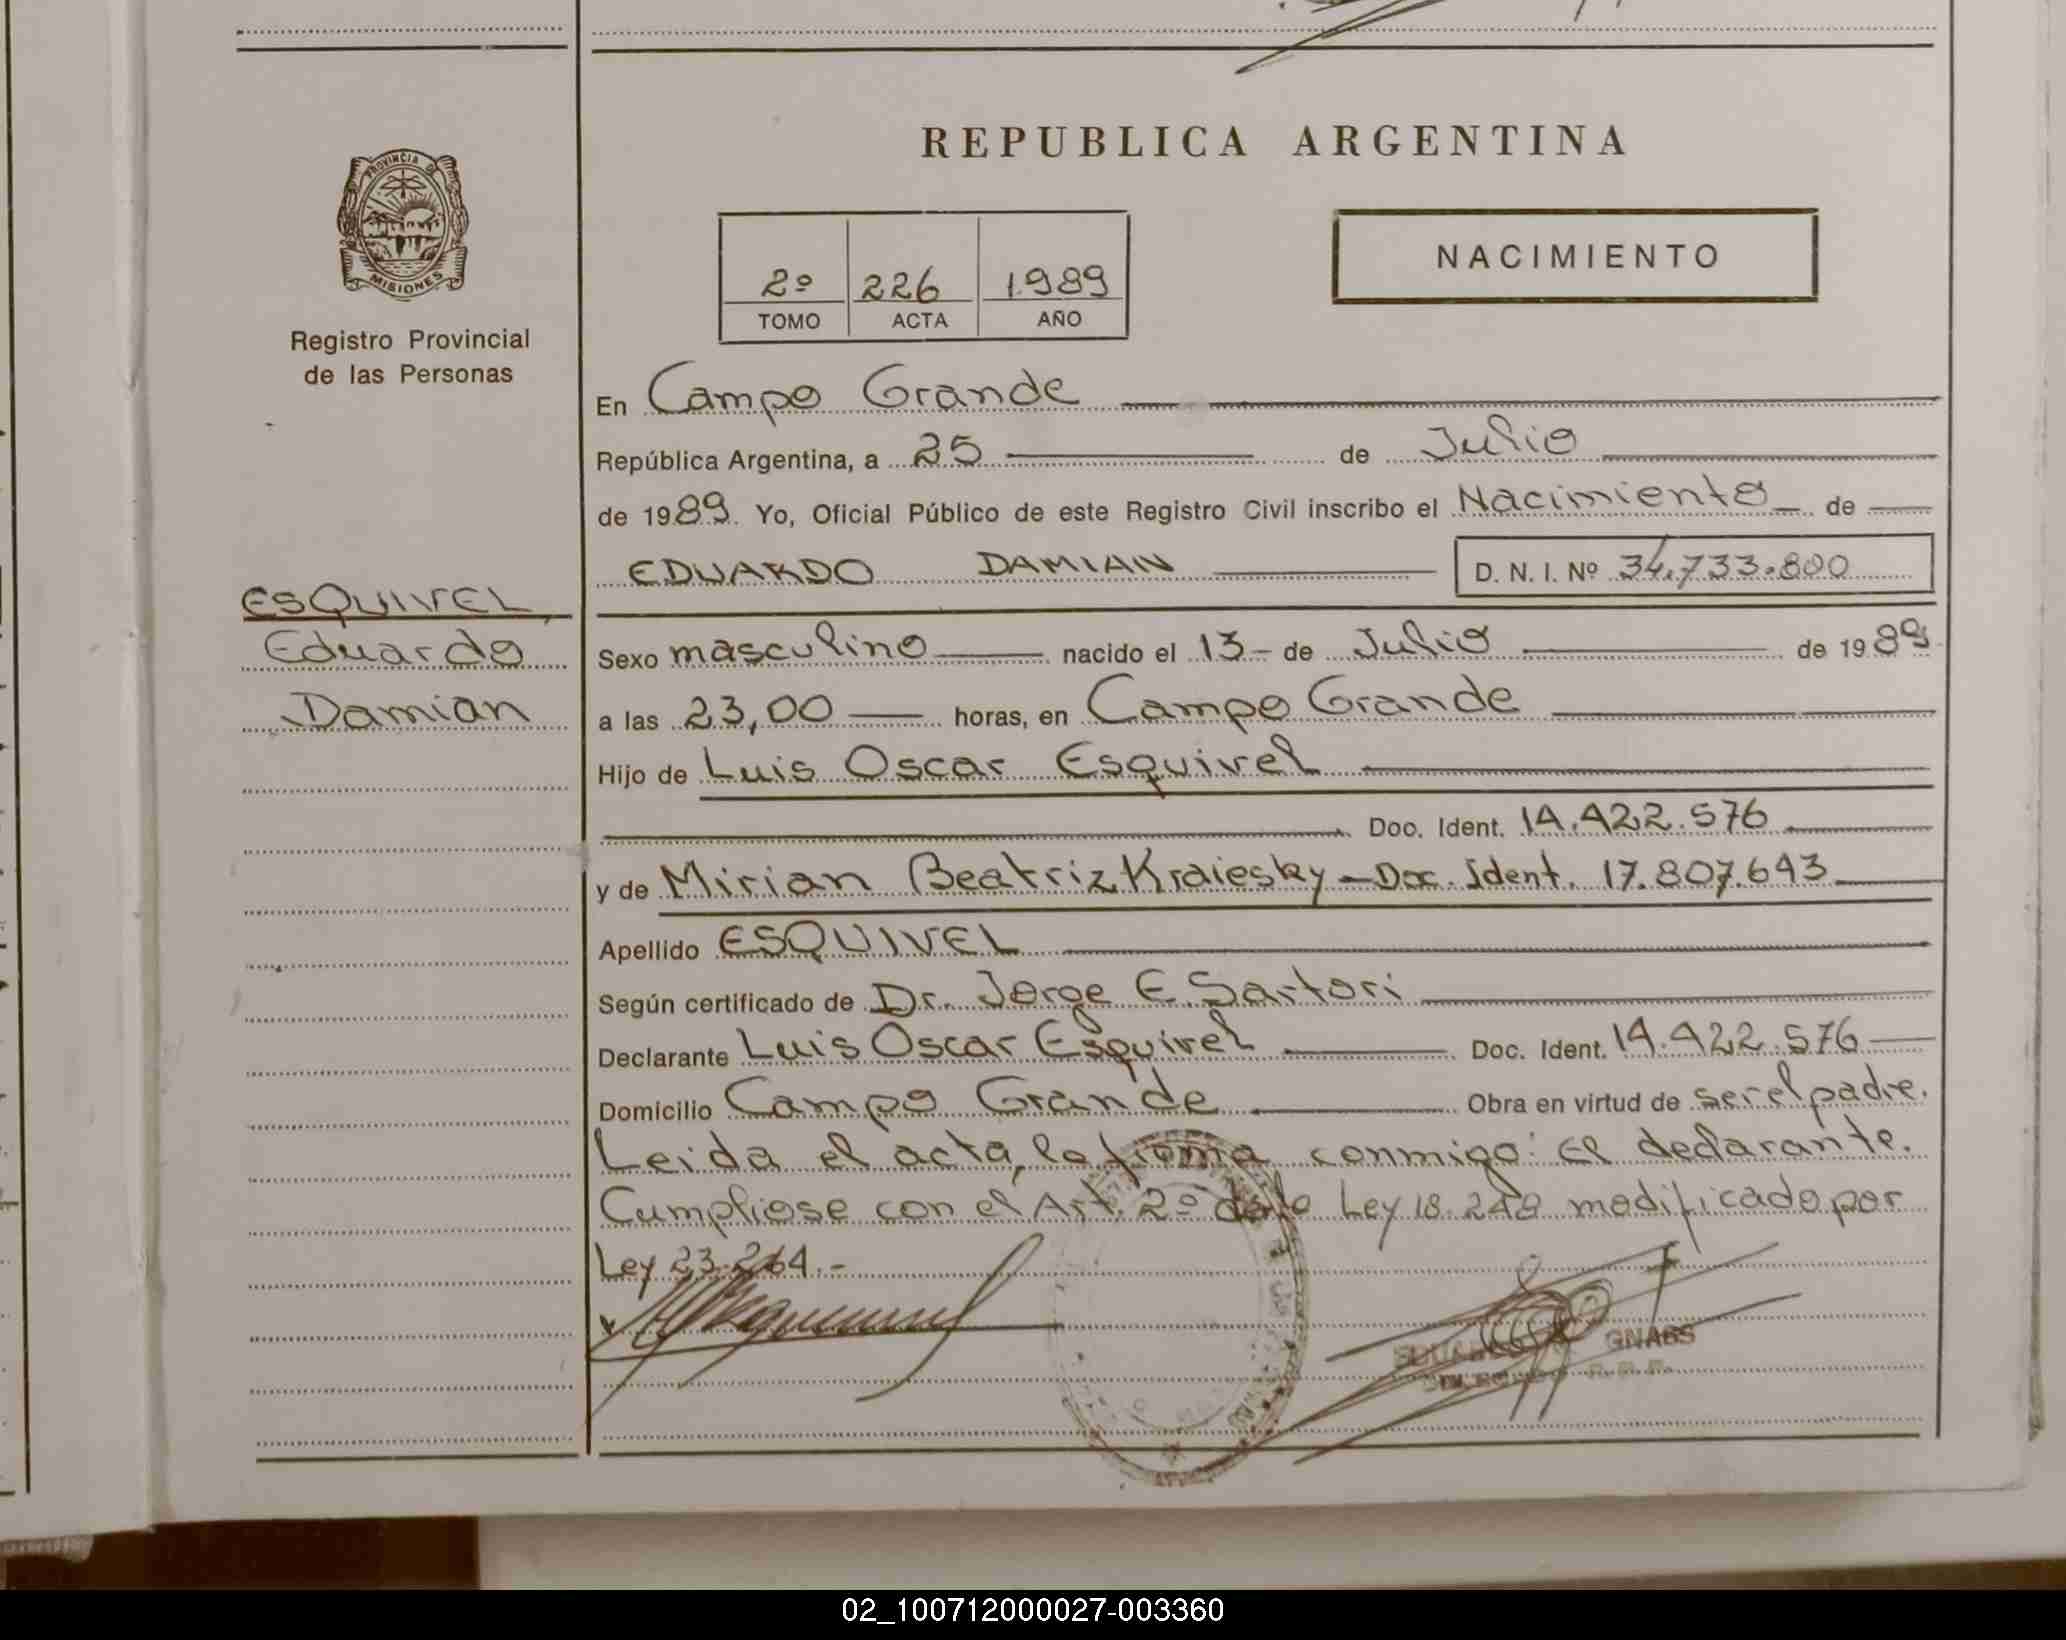 REPUBLICA ARGENTINA
PROVINCIA D
MISIONES
Registro Provincial
de las Personas
2º 226 1989
TOMO ACTA AÑO
NACIMIENTO
En Campo Grande
República Argentina, a 25 de Julio
de 1989. Yo, Oficial Público de este Registro Civil inscribo el Nacimiento de
EDUARDO DAMIAN D. N. I. Nº 34.733.800
ESQUIVEL,
Eduardo
Damian
Sexo masculino nacido el 13 de Julio de 1989
a las 23,00 horas, en Campo Grande
Hijo de Luis Oscar Esquivel
Doc. Ident. 14.422.576
y de Mirian Beatriz Kraiesky - Doc. Ident. 17.807.643
Apellido ESQUIVEL
Según certificado de Dr. Jorge E. Sartori
Declarante Luis Oscar Esquivel Doc. Ident. 14.422.576
Domicilio Campo Grande Obra en virtud de ser el padre.
Leida el acta, la firma conmigo: El declarante.
Cumpliose con el Art. 2º de la Ley 18.248 modificado por
Ley 23.264.-
GNASS
02_100712000027-003360